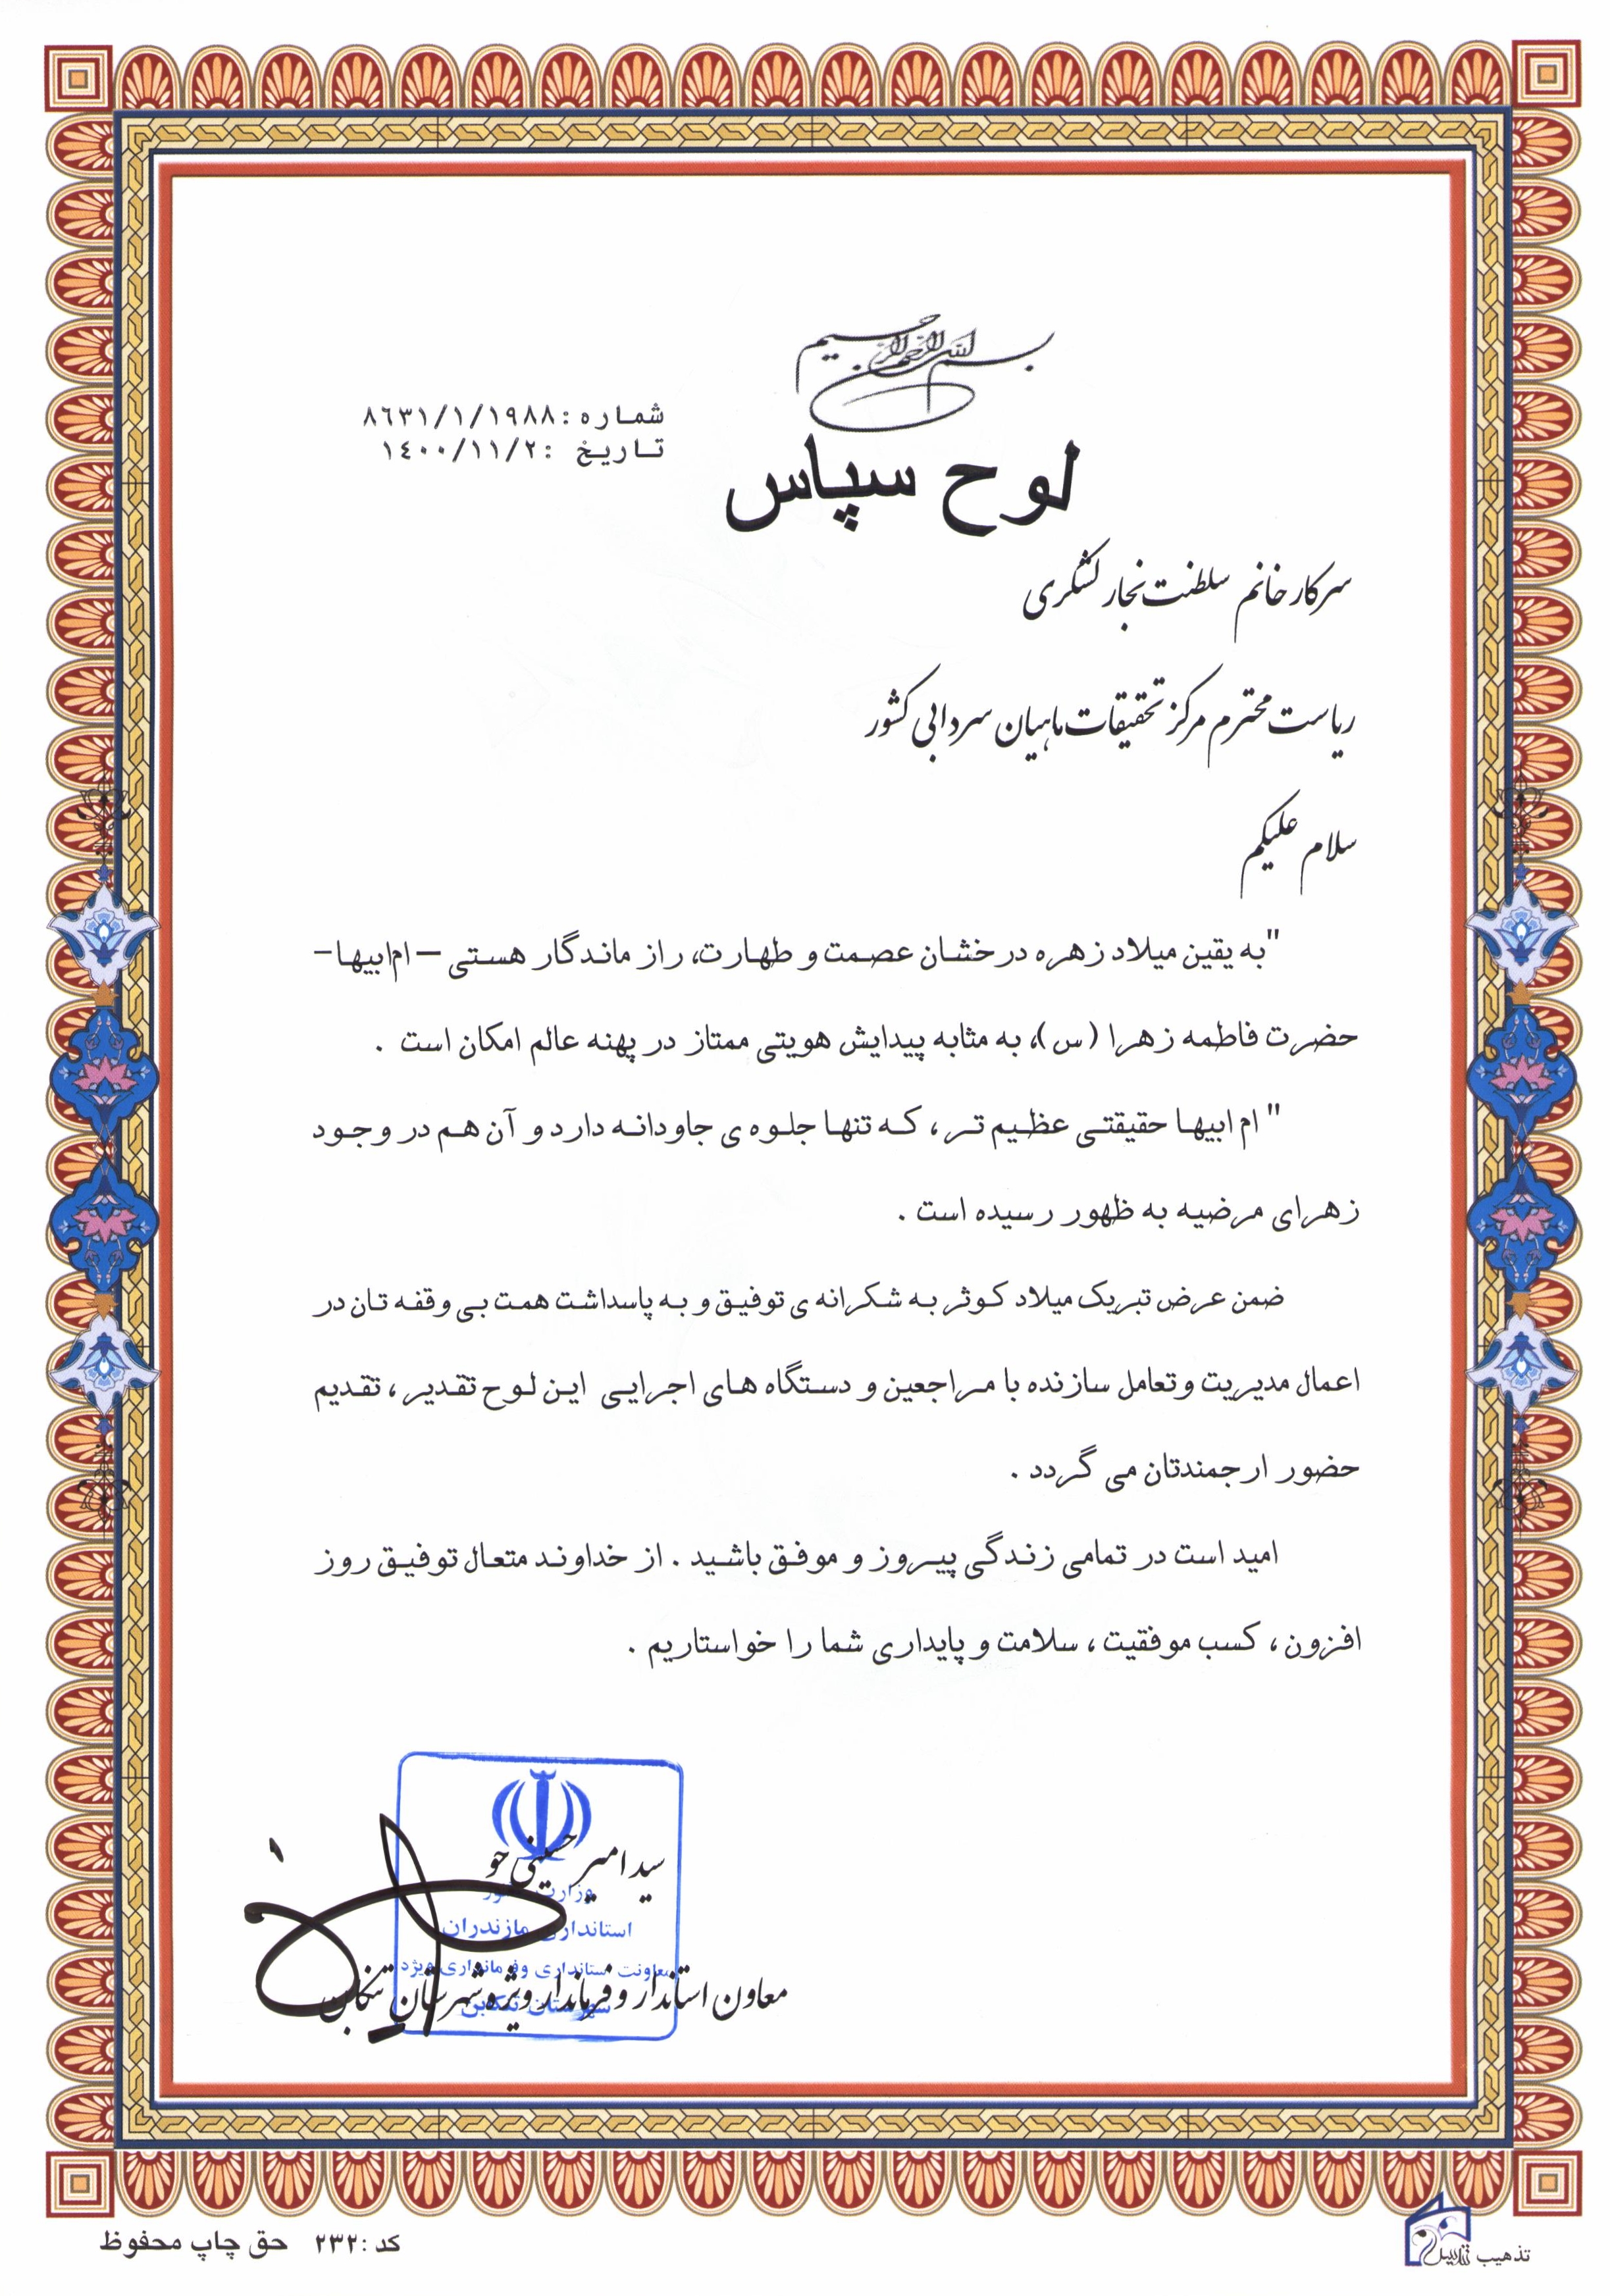 بسم الله الرحمن الرحیم
شماره: ۸۶۳۱/۱/۱۹۸۸
تاریخ: ۱۴۰۰/۱۱/۲
لوح سپاس
سرکار خانم سلطنت نجار لشکری
ریاست محترم مرکز تحقیقات ماهیان سردابی کشور
سلام علیکم
"به یقین میلاد زهره درخشان عصمت و طهارت، راز ماندگار هستی – ام ابیها-
حضرت فاطمه زهرا (س)، به مثابه پیدایش هویتی ممتاز در پهنه عالم امکان است .
" ام ابیها حقیقتی عظیم تر ، که تنها جلوه ی جاودانه دارد و آن هم در وجود
زهرای مرضیه به ظهور رسیده است .
ضمن عرض تبریک میلاد کوثر به شکرانه ی توفیق و به پاسداشت همت بی وقفه تان در
اعمال مدیریت و تعامل سازنده با مراجعین و دستگاه های اجرایی این لوح تقدیر ، تقدیم
حضور ارجمندتان می گردد .
امید است در تمامی زندگی پیروز و موفق باشید . از خداوند متعال توفیق روز
افزون ، کسب موفقیت ، سلامت و پایداری شما را خواستاریم .
سید امیر حسینی جو
وزارت کشور
استانداری مازندران
معاونت استانداری و فرمانداری ویژه
معاون استاندار و فرماندار ویژه شهرستان تنکابن
شهرستان تنکابن
کد : ۲۳۲ حق چاپ محفوظ
تذهیب